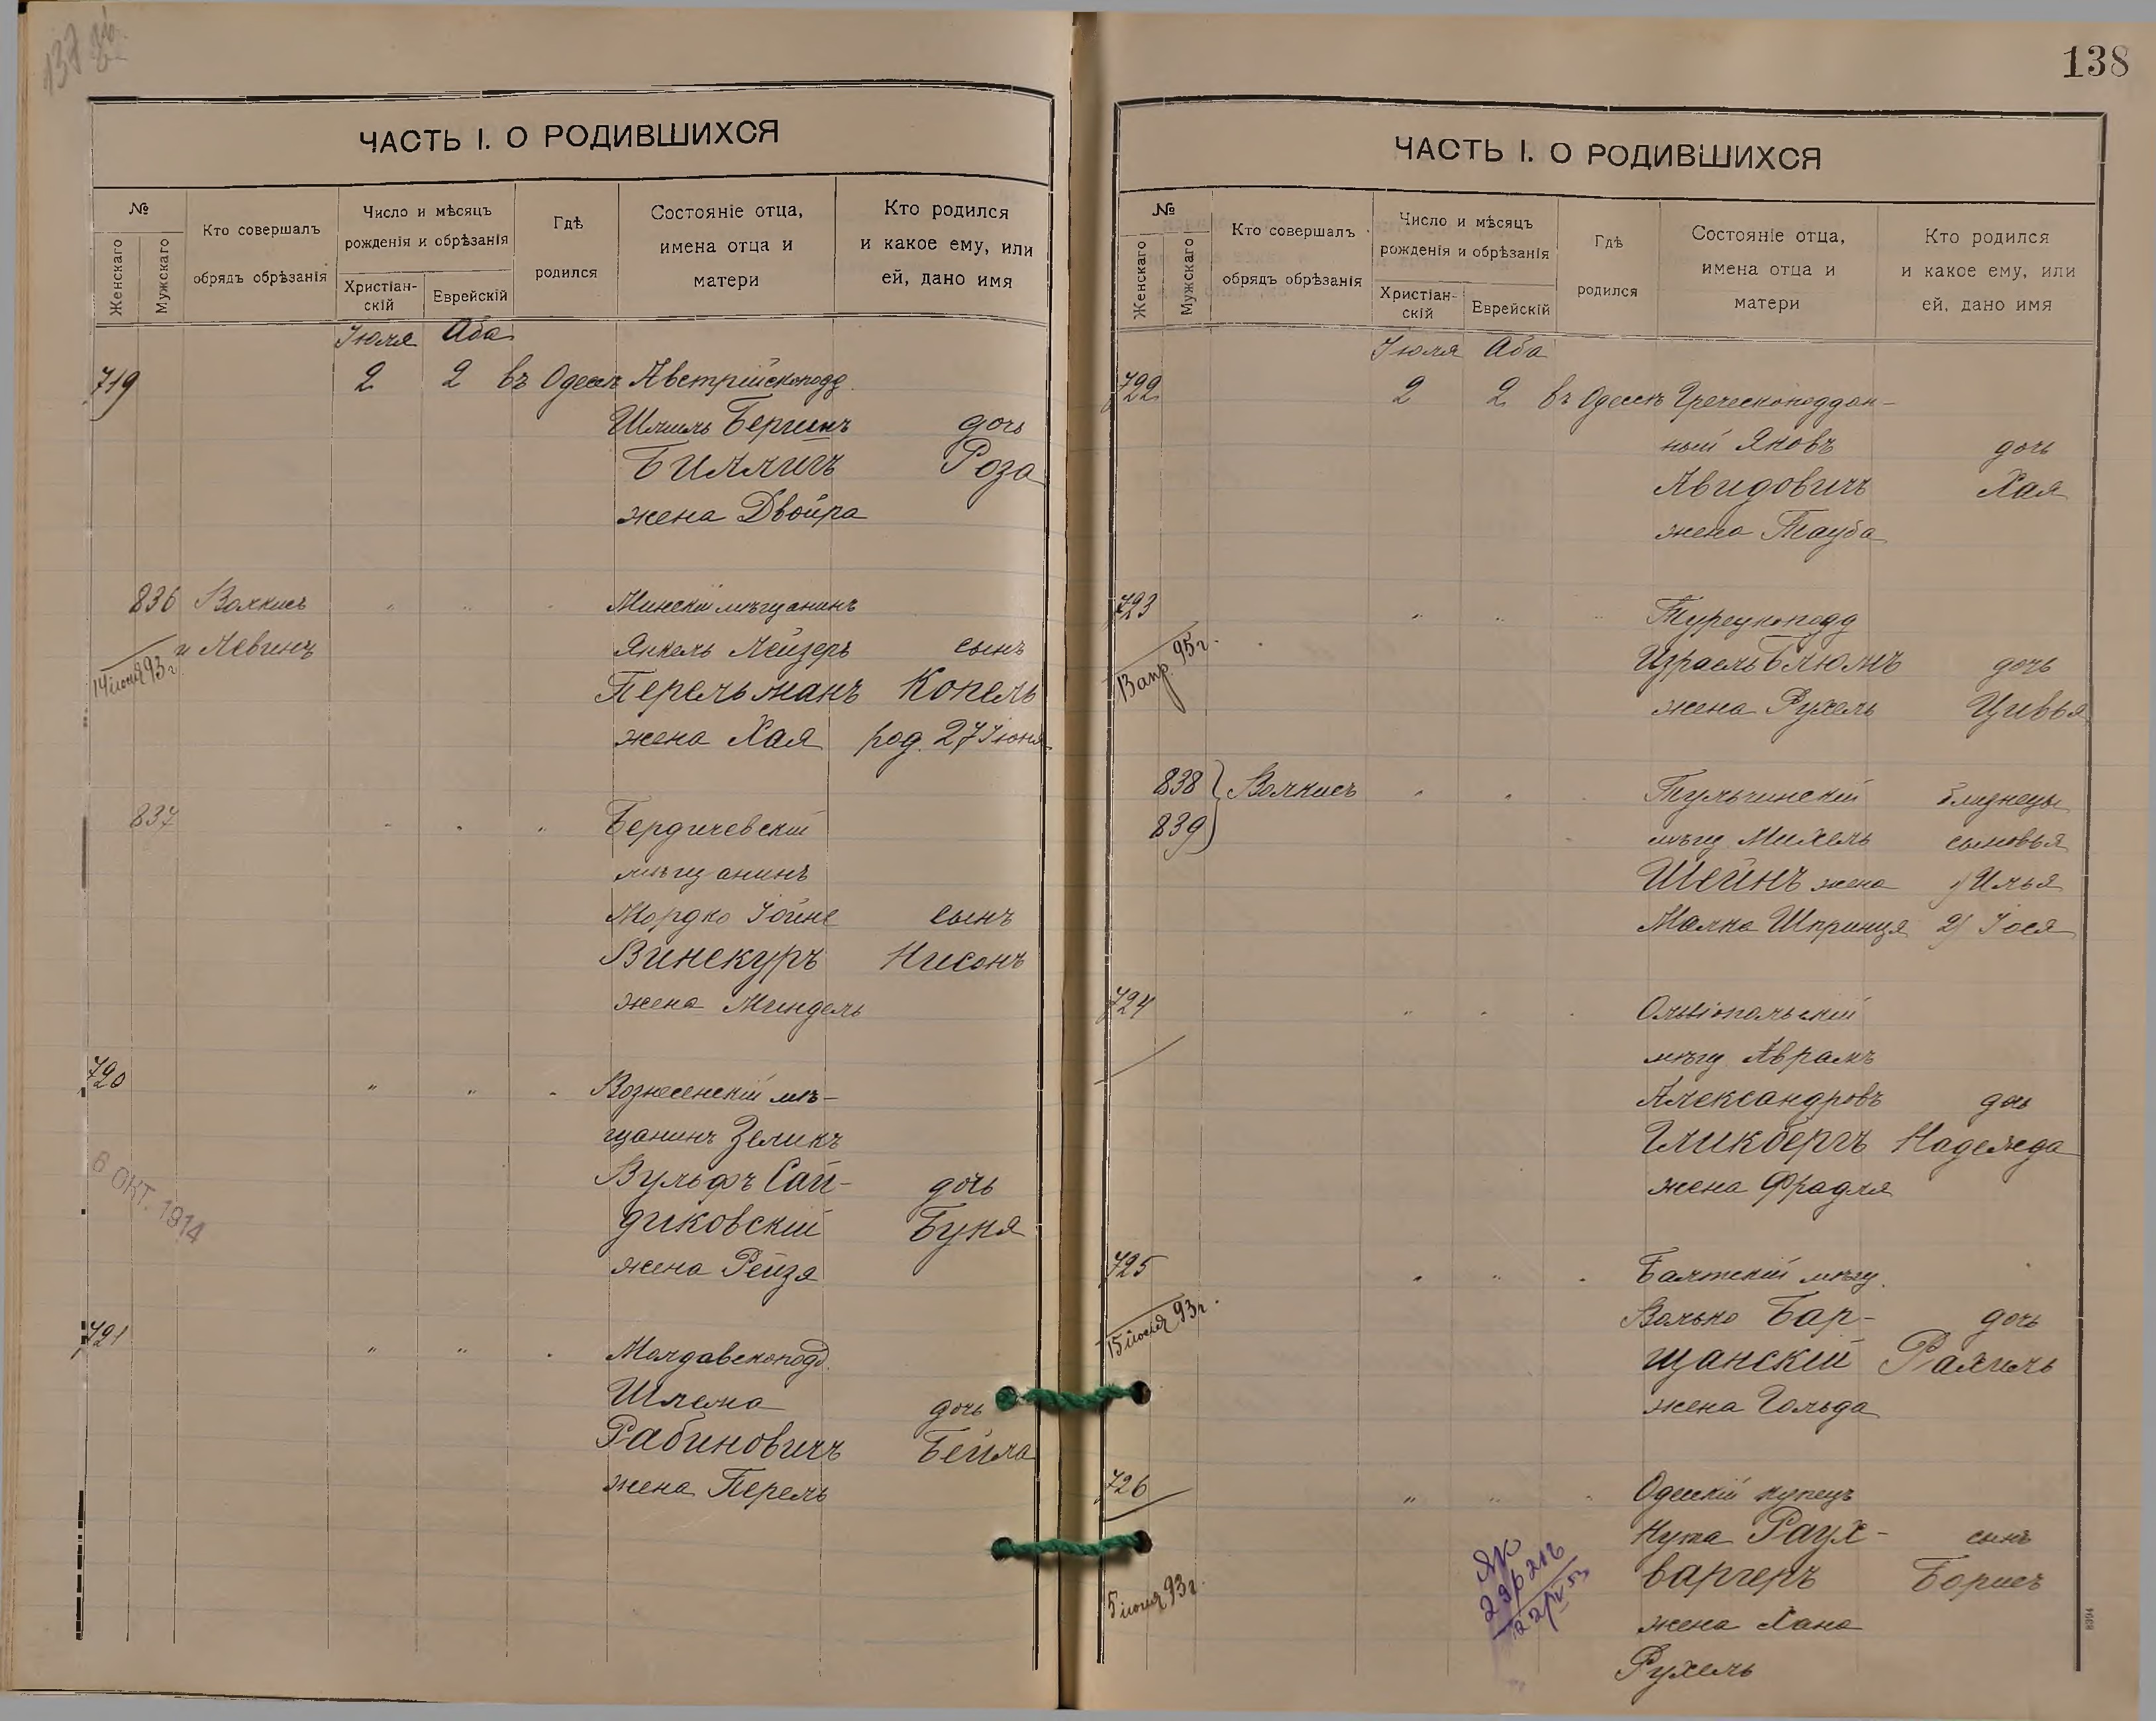 138
ЧАСТЬ I. О РОДИВШИХСЯ
№
Женскаго
Мужскаго
Кто совершалъ
обрядъ обрѣзанія
Число и мѣсяцъ
рожденія и обрѣзанія
Христіан-
скій
Еврейскій
Гдѣ
родился
Состояніе отца,
имена отца и
матери
Кто родился
и какое ему, или
ей, дано имя
Іюля Аба
719 2 2 въ Одессѣ Австрійскоподд.
Шмиль Бергинъ дочь
Биллигъ Роза
жена Двойра
836 Волкисъ " " " Минскій мѣщанинъ
и Левинъ Янкель Лейзеръ сынъ
14 іюня 93 г.
Перельманъ Копель
жена Хая род. 27 Іюня
837 " " " Бердичевскій
мѣщанинъ
Мордко Іойне сынъ
Винекуръ Нисонъ
жена Миндель
720 " " " Вознесенскій мѣ-
щанинъ Зеликъ
6 ОКТ. 1914
Вульфъ Сай- дочь
диковскій Буня
жена Рейзя
721 " " " Молдавскоподд.
Шлема дочь
Рабиновичъ Бейла
жена Перель
138
ЧАСТЬ I. О РОДИВШИХСЯ
№
Женскаго
Мужскаго
Кто совершалъ
обрядъ обрѣзанія
Число и мѣсяцъ
рожденія и обрѣзанія
Христіан-
скій
Еврейскій
Гдѣ
родился
Состояніе отца,
имена отца и
матери
Кто родился
и какое ему, или
ей, дано имя
Іюля Аба
722 2 2 въ Одессѣ Греческоподдан-
ный Яковъ дочь
Авидовичъ Хая
жена Тауба
723 " " " Турецкоподд
13 апр. 95 г.
Израель Блюмъ дочь
жена Рухель Цивья
838 Волкисъ " " " Тульчинскій близнецы
839 мѣщ Михель сыновья
Шейнъ жена 1) Илья
Малка Шпринця 2) Іося
724 " " " Ольвіопольскій
мѣщ Аврамъ
Александровъ дочь
Гликбергъ Надежда
жена Фрадля
725 " " " Балтскій мѣщ.
15 іюня 93 г.
Волько Бар- дочь
щанскій Рахиль
жена Гольда
726 " " " Одесскій купецъ
Нута Раух- сынъ
варгеръ Борисъ
5 іюня 93 г.
жена Хана
Рухель
8394